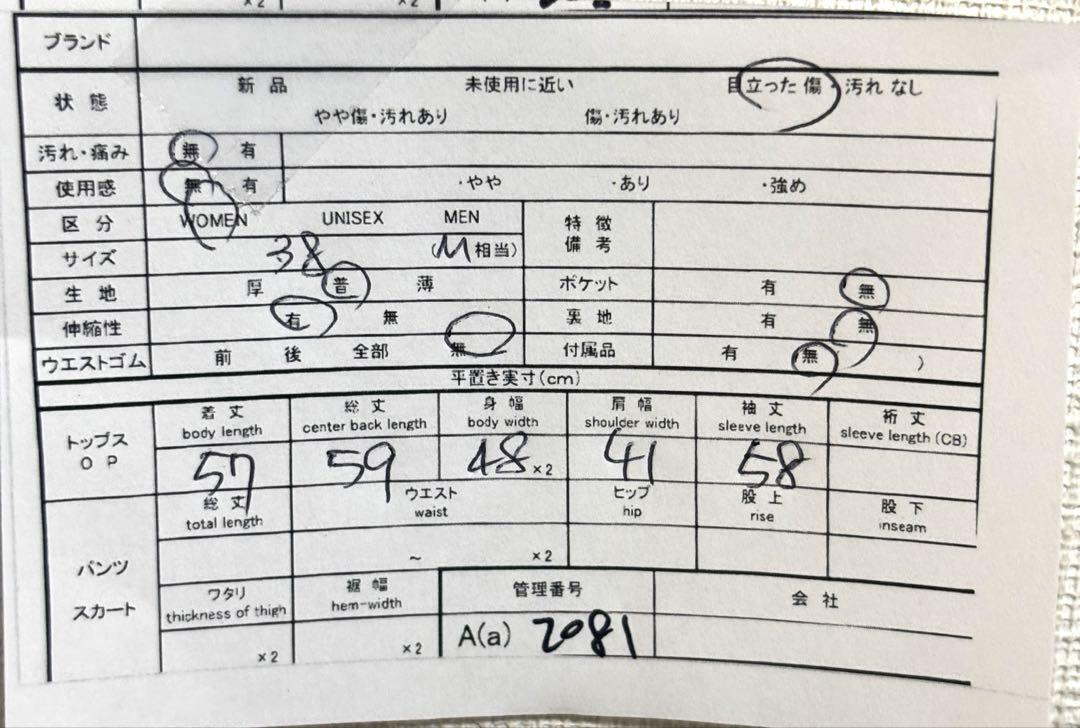 ×2 ×2
ブランド
状態 新品 未使用に近い 目立った傷・汚れなし
やや傷・汚れあり 傷・汚れあり
汚れ・痛み 無 有
使用感 無 有 ・やや ・あり ・強め
区分 WOMEN UNISEX MEN 特徴
備考
サイズ 38 (M相当)
生地 厚 普 薄 ポケット 有 無
伸縮性 有 無 裏地 有 無
ウエストゴム 前 後 全部 無 付属品 有 無 )
平置き実寸(cm)
トップス
OP
着丈 総丈 身幅 肩幅 袖丈 裄丈
body length center back length body width shoulder width sleeve length sleeve length (CB)
57 59 48 ×2 41 58
パンツ
スカート
総丈 ウエスト ヒップ 股上 股下
total length waist hip rise inseam
~ ×2
ワタリ 裾幅 管理番号 会社
thickness of thigh hem-width
×2 ×2 A(a) 2081